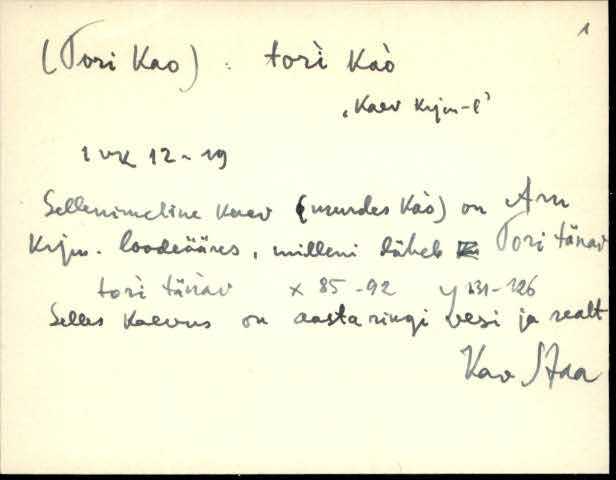 1
(Tori Kao) : tori̇̀ Kàò
"Kaev Krjm-l"
1 vk 12-19
Sellenimeline kaev (murdes Kàò) on Aru
Krjm. loodeääres, milleni läheb Tori tänav
tori̇̀ tänav x 85-92 y 131-126
Selles kaevus on aasta ringi vesi ja sealt